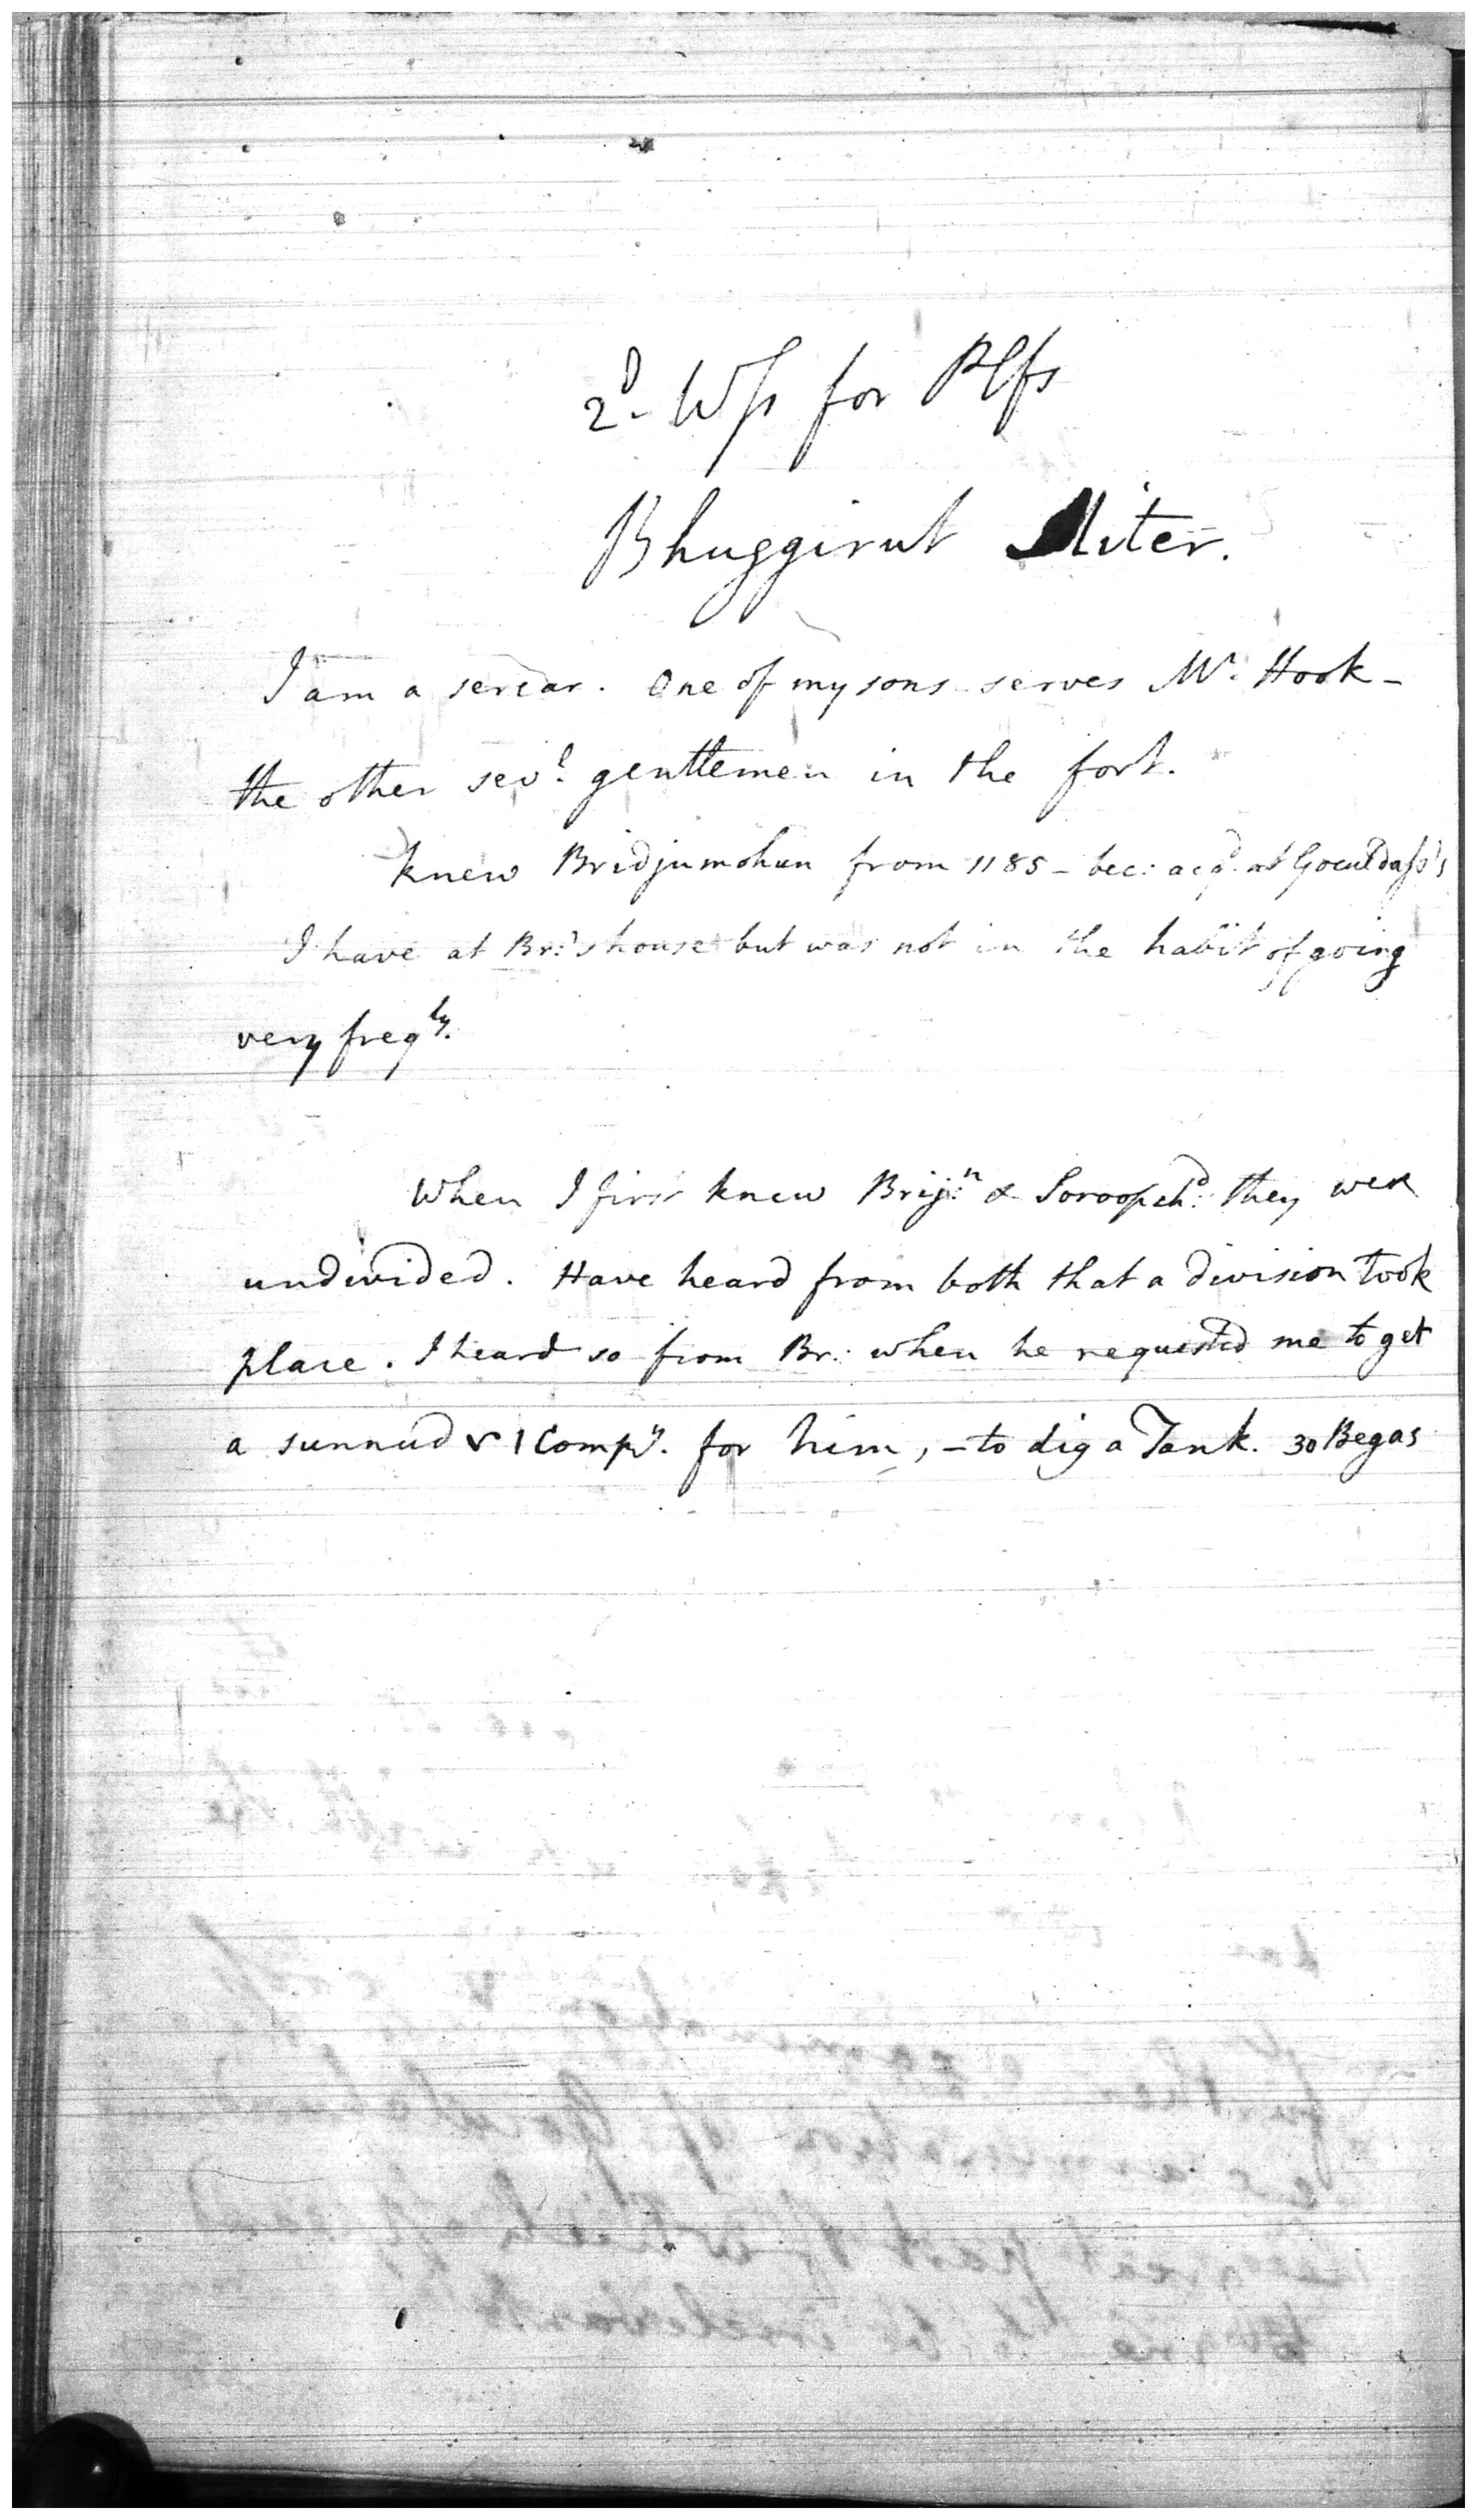 2d. Ws for Plfs
Bhuggirut Miter.
I am a sercar. One of my sons serves Mr. Hook -
the other sevl. gentlemen in the fort.
knew Bridjumohun from 1185 - bec: acqd. at Goculdass's
I have at Br:'s house but was not in the habit of going
very freqly.
When I first knew Brij:n & Soroopchd: they were
undivided. Have heard from both that a division took
place. I heard so from Br: when he requested me to get
a sunnud Compy. for him, - to dig a Tank. 30 Begas